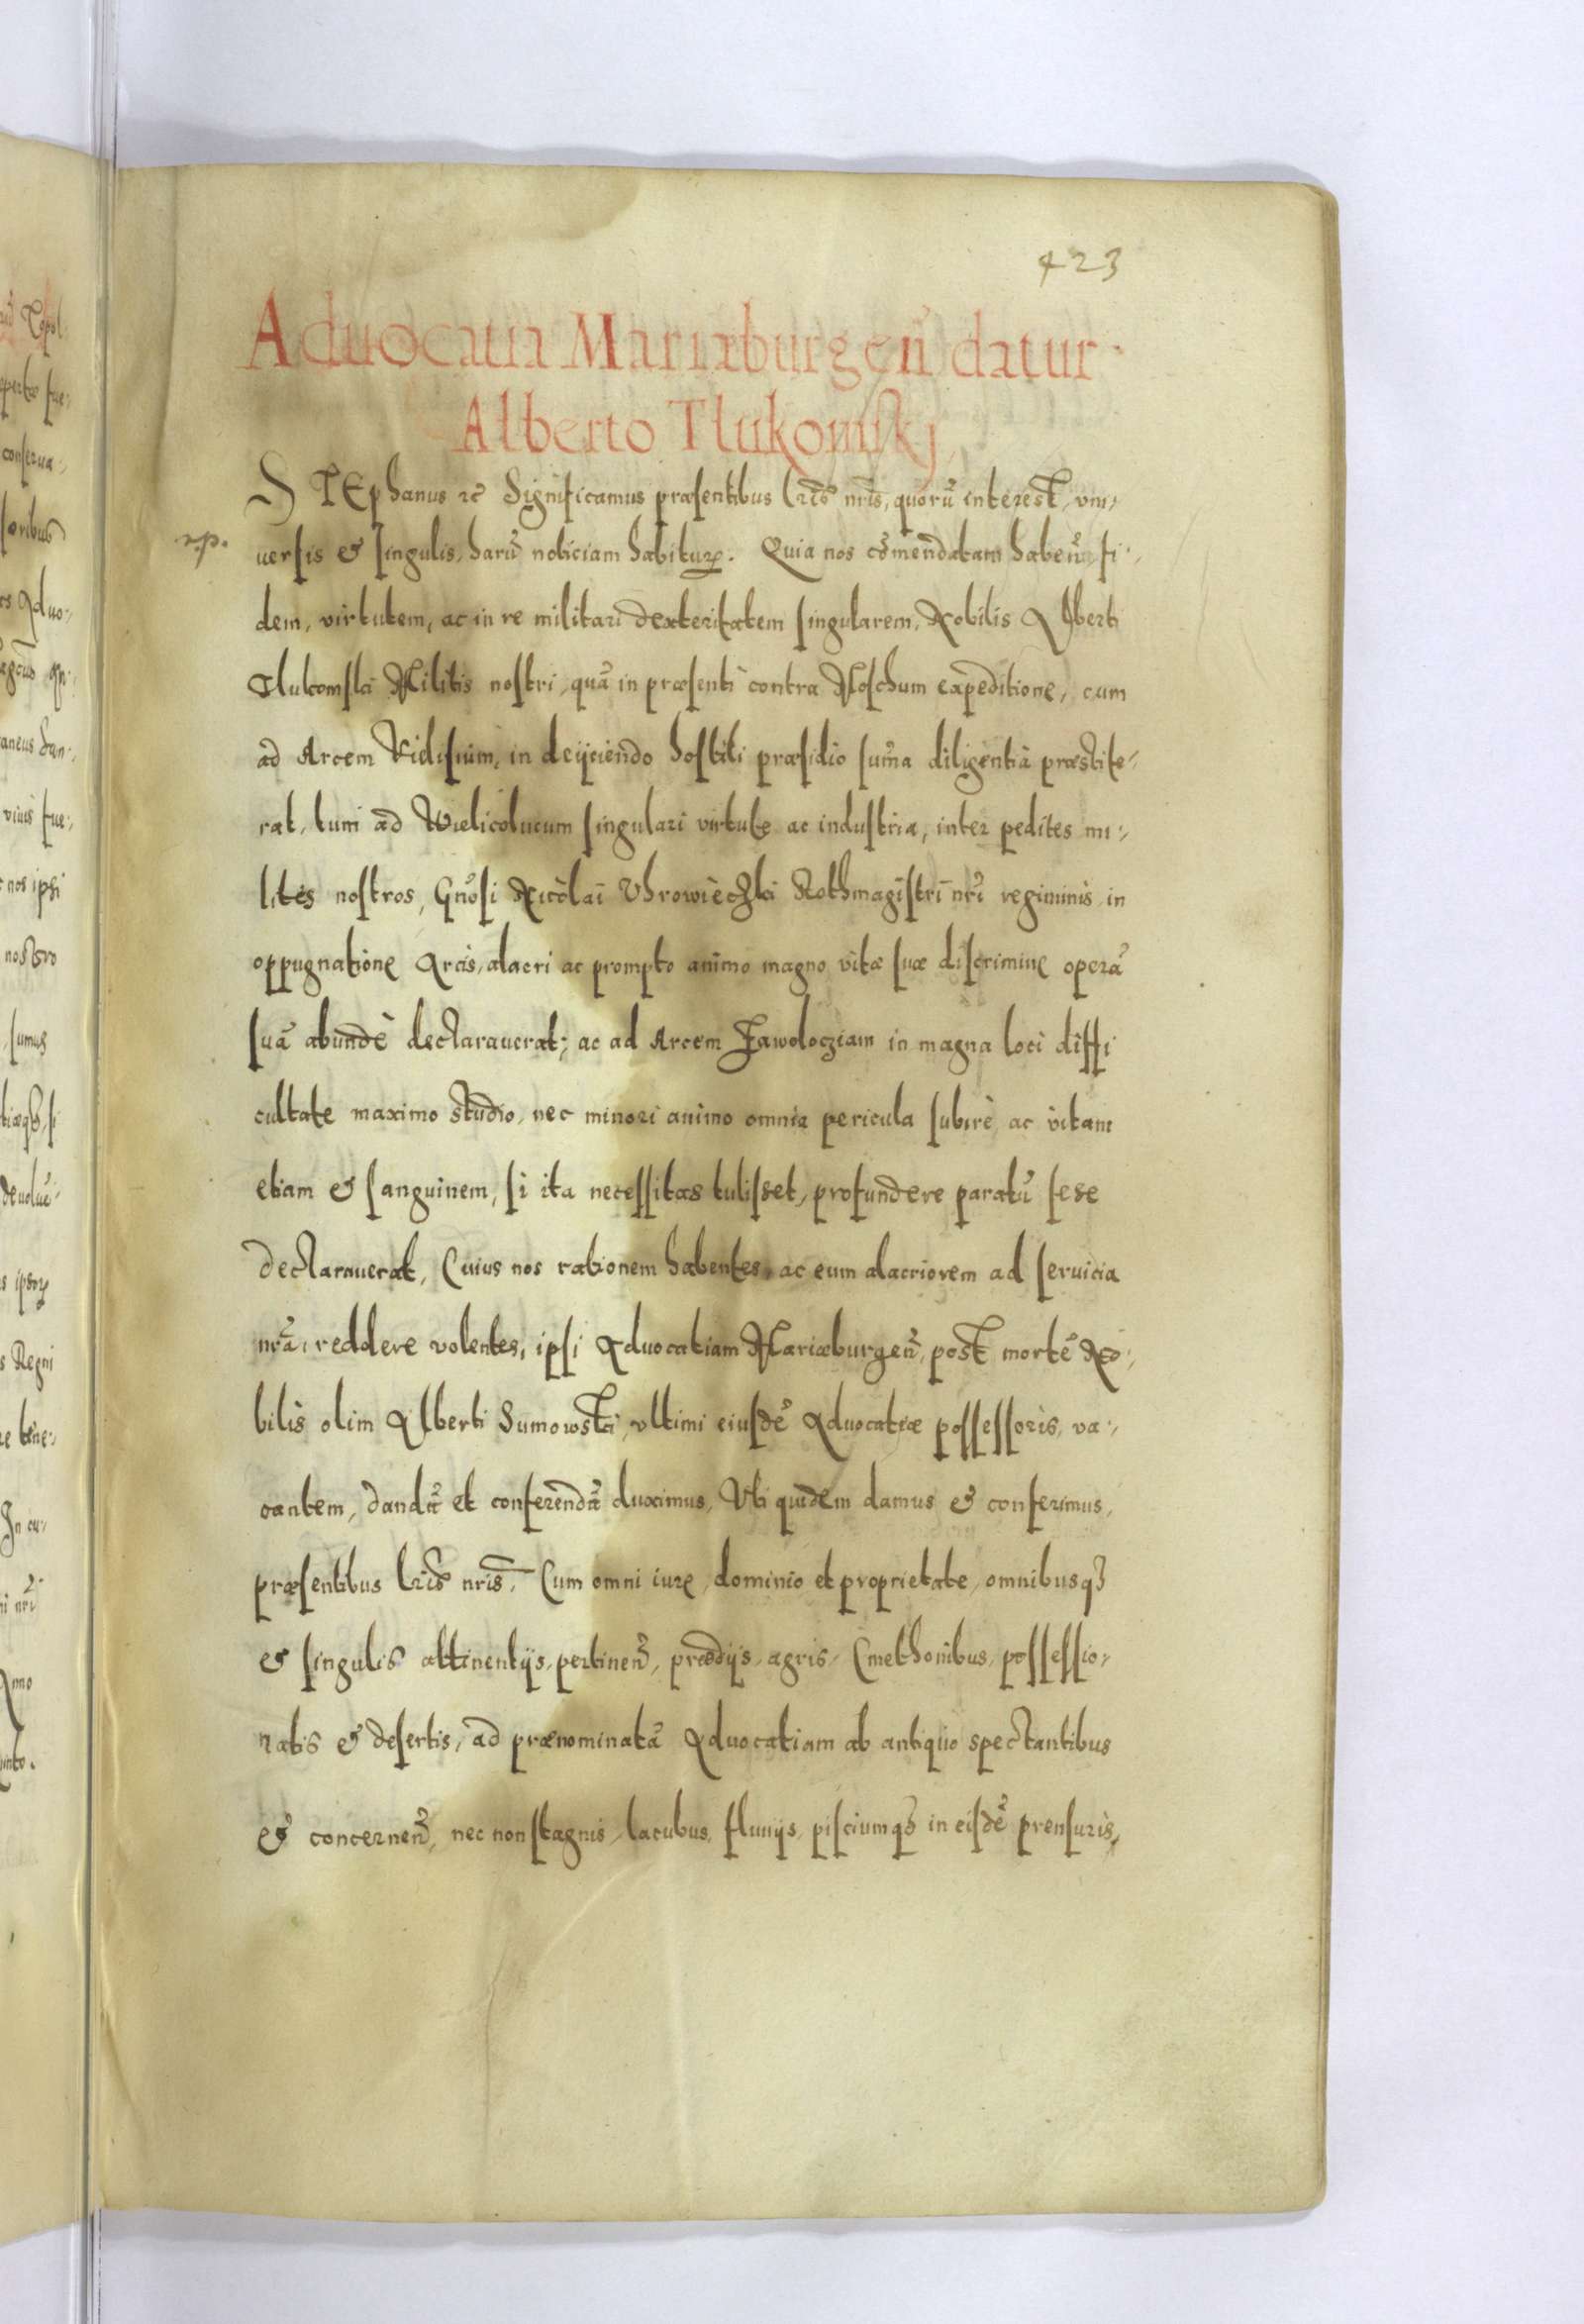 423
Aduocatia Mariæburgeñ datur
Alberto Tlukomskj
STEphanus rc̃ Significamus præsentibus lr̃is nr̃is, quorũ interest, vni,
uersis & singulis, harũ noticiam habituꝝ. Quia nos cõmendatam habeñ, fi,
dem, virtutem, ac in re militari dexteritatem singularem, Nobilis Alberti
Tlukomski Militis nostri, quã in præsenti contra Moschum expeditione, cum
ad Arcem Vielisium, in deijciendo hostili præsidio sum̃a diligentia præstite,
rat, tum ad Wielicolucum singulari virtute ac industria, inter pedites mi,
lites nostros, Gnõsi Nicolai Vhrowieczki Rothmagistri nr̃i regiminis in
oppugnatione Arcis, alacri ac prompto animo magno vitæ suæ discrimine operã
suã abundè declarauerat; ac ad Arcem Zawolocziam in magna loci diffi
cultate maximo studio, nec minori animo omnia pericula subire, ac vitam
etiam & sanguinem, si ita necessitas tulisset, profundere paratũ sese
declarauerat, Cuius nos rationem habentes, ac eum alacriorem ad seruicia
nr̃a, reddere volentes, ipsi Aduocatiam Mariæburgeñ, post mortẽ No,
bilis olim Alberti Sumowski, vltimi eiusdẽ Aduocatiæ possessoris, va,
cantem, dandã et conferendã duximus, Vti quidem damus & conferimus,
præsentibus lr̃is nr̃is, Cum omni iure, dominio et proprietate, omnibusqꝫ
& singulis attinentijs, pertineñ, prædijs, agris, Cmethonibus, possessio,
natis & desertis, ad prænominatã Aduocatiam ab antiquo spectantibus
& concerneñ, nec non stagnis, lacubus, fluuijs, pisciumqꝫ in eisdẽ prensuris,